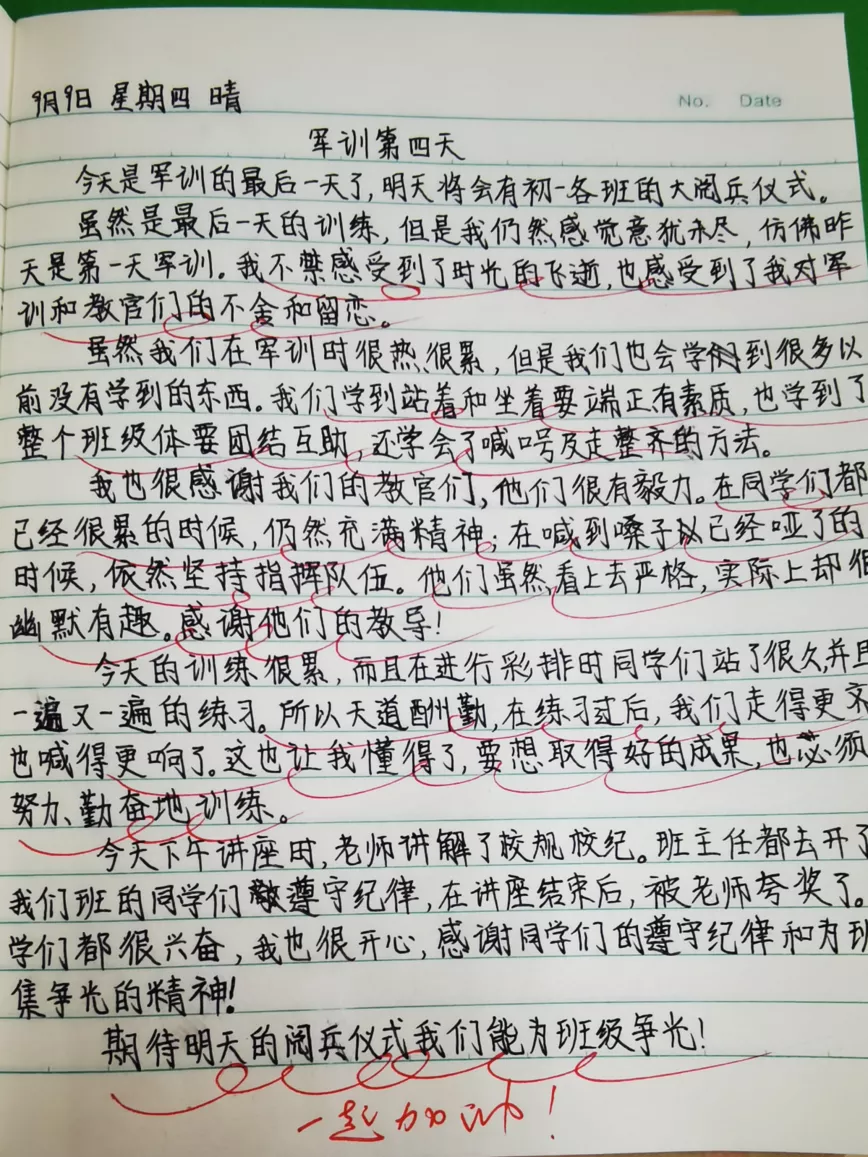 No. Date
9月9日 星期四 晴
军训第四天
今天是军训的最后一天了,明天将会有初一各班的大阅兵仪式。
虽然是最后一天的训练,但是我仍然感觉意犹未尽,仿佛昨
天是第一天军训。我不禁感受到了时光的飞逝,也感受到了我对军
训和教官们的不舍和留恋。
虽然我们在军训时很热很累,但是我们也会学到很多以
前没有学到的东西。我们学到站着和坐着要端正有素质,也学到了
整个班级体要团结互助,还学会了喊口号及走整齐的方法。
我也很感谢我们的教官们,他们很有毅力。在同学们都
已经很累的时候,仍然充满精神;在喊到嗓子以已经哑了的
时候,依然坚持指挥队伍。他们虽然看上去严格,实际上却很
幽默有趣。感谢他们的教导!
今天的训练很累,而且在进行彩排时同学们站了很久并且
一遍又一遍的练习。所以天道酬勤,在练习过后,我们走得更齐
也喊得更响了。这也让我懂得了,要想取得好的成果,也必须
努力、勤奋地训练。
今天下午讲座时,老师讲解了校规校纪。班主任都去开了
我们班的同学们遵守纪律,在讲座结束后,被老师夸奖了。
学们都很兴奋,我也很开心,感谢同学们的遵守纪律和为班
集争光的精神!
期待明天的阅兵仪式我们能为班级争光!
一起加油!